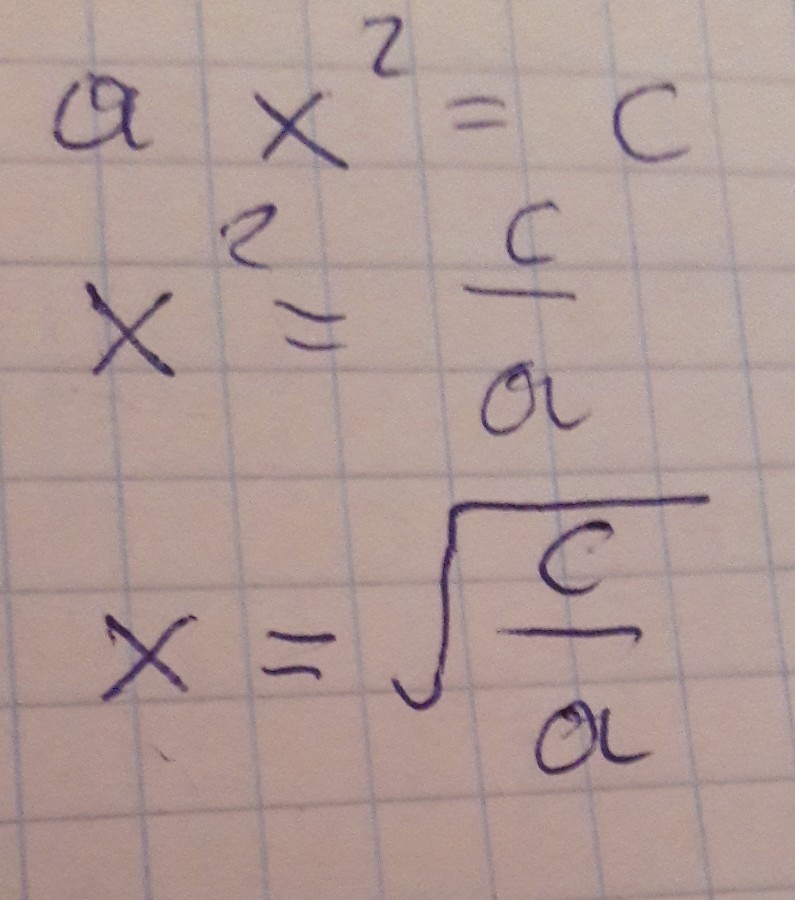 a x² = c
x² = c/a
x = √(c/a)